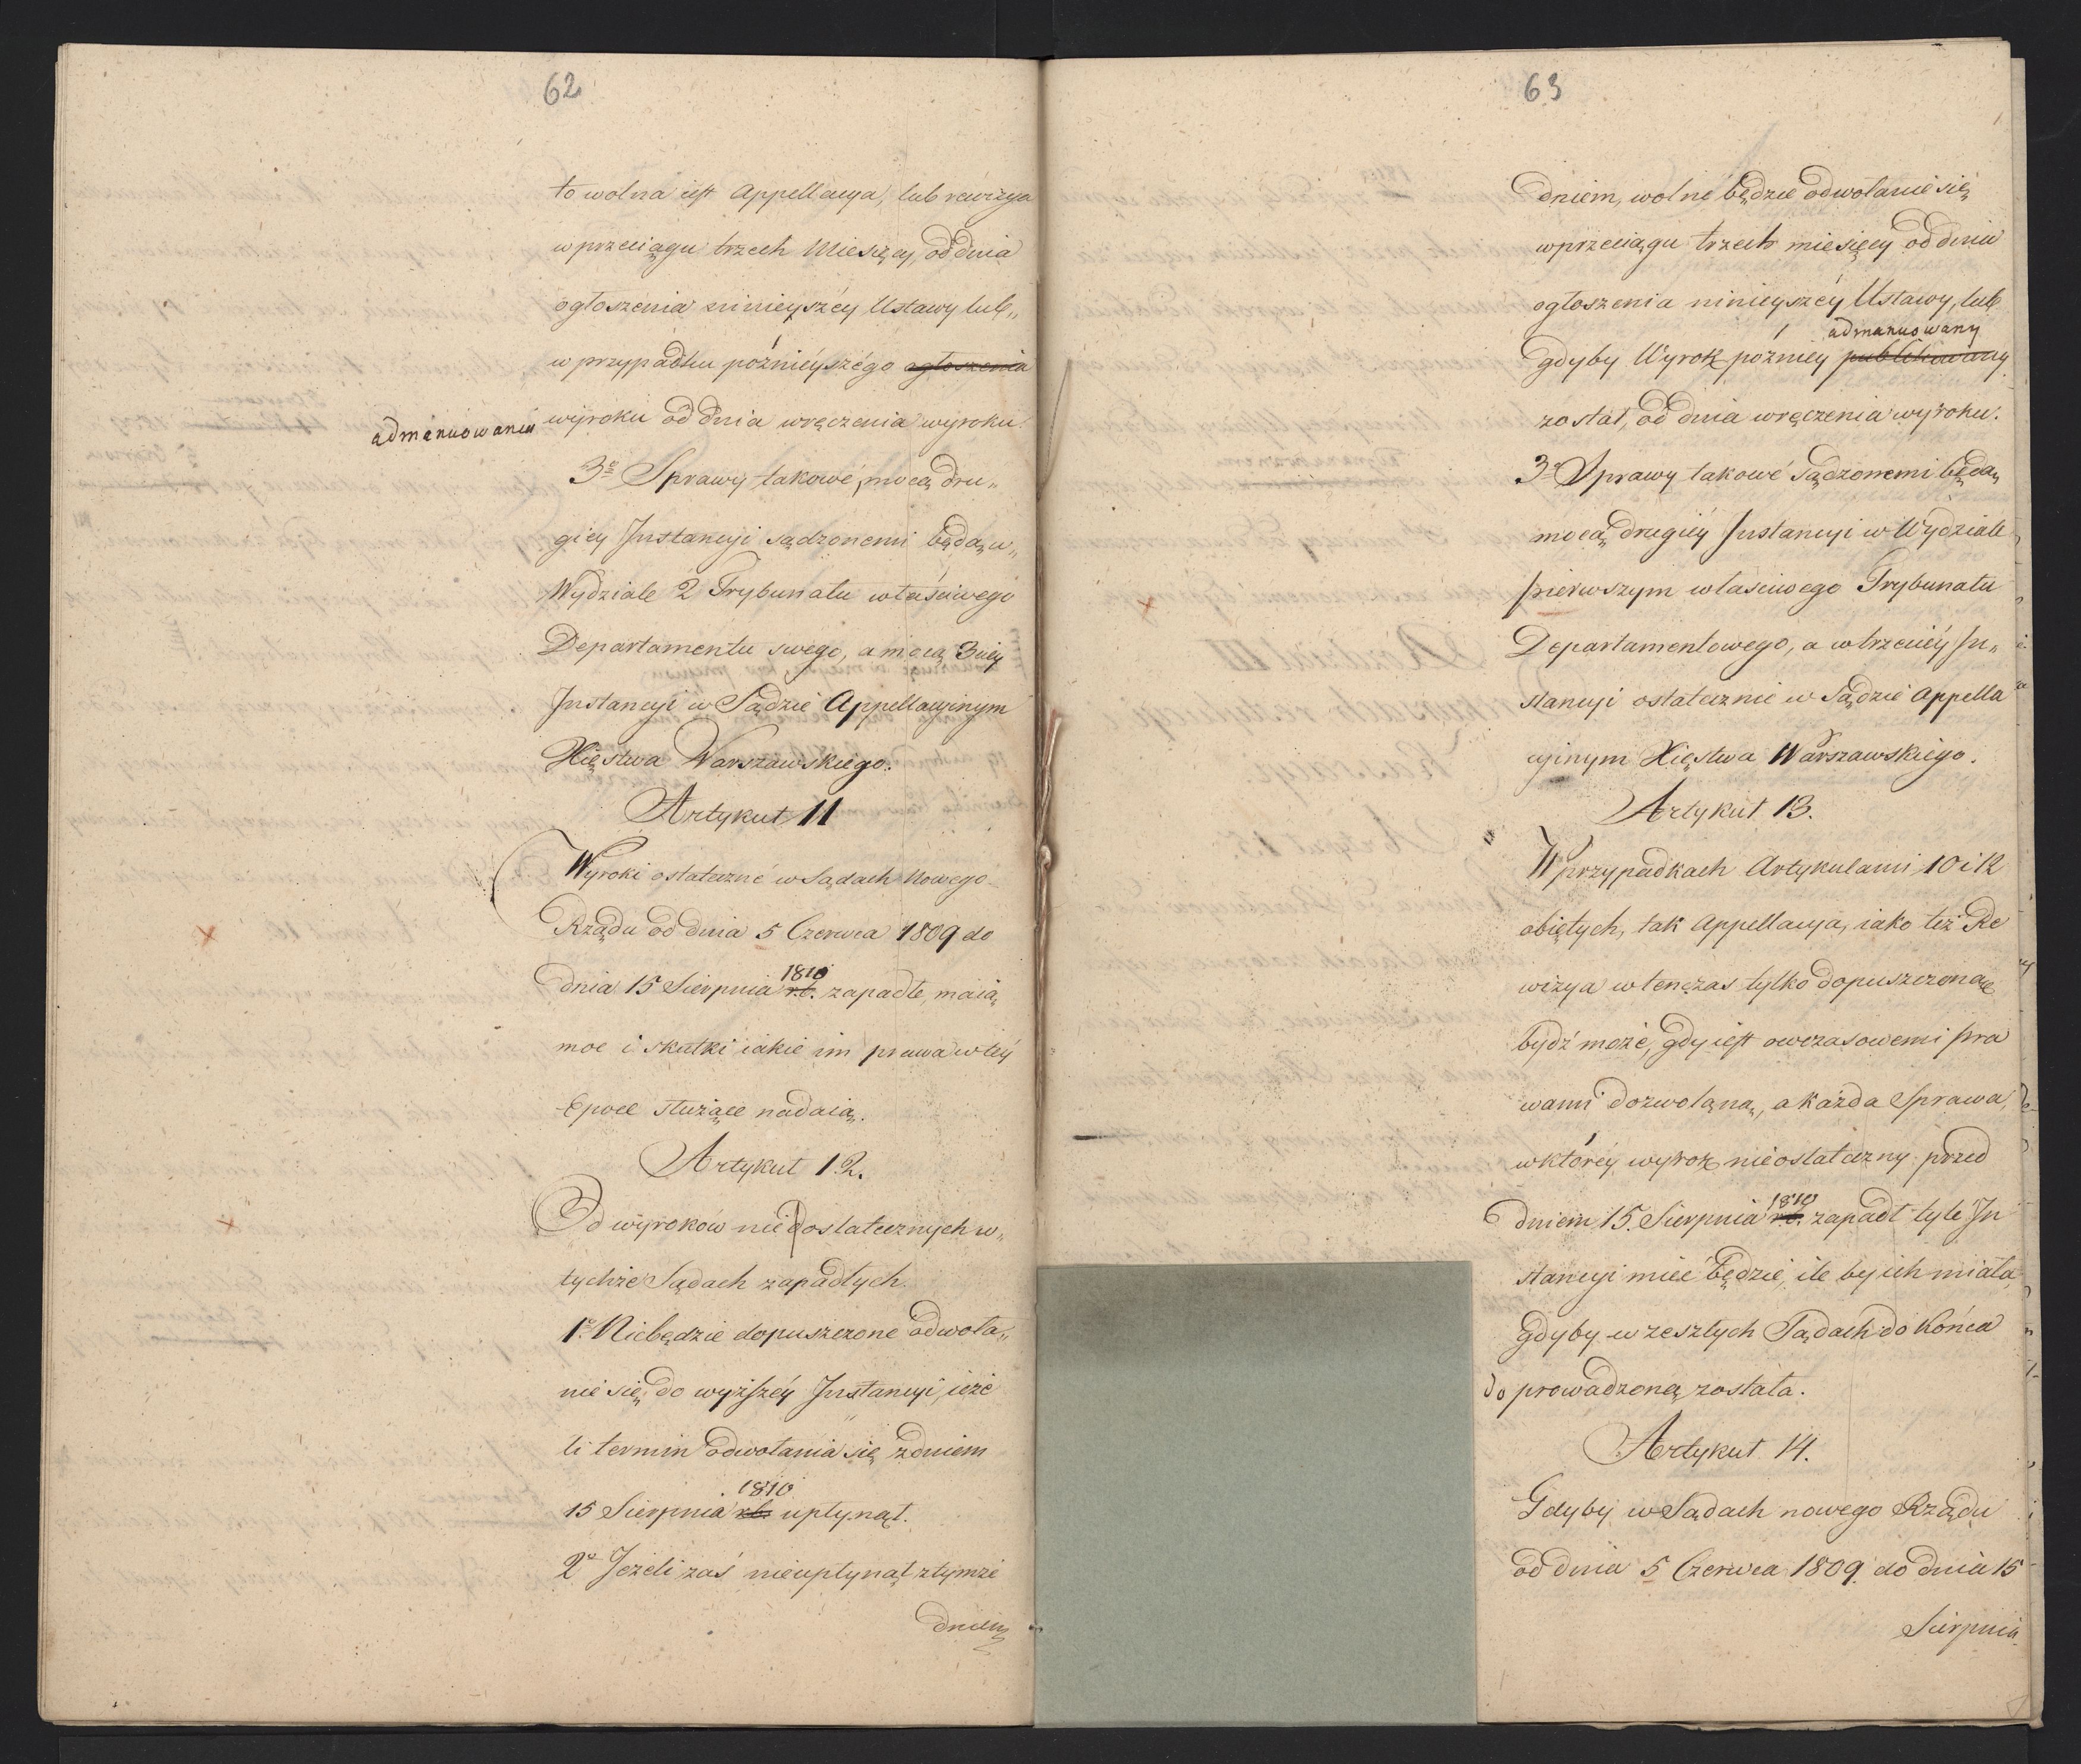 62
to wolna iest Appellacya, lub rewizya
w przeciągu trzech Miesięcy, od dnia
ogłoszenia ninieyszéy Ustawy lub„
w przypadku poźnieyszégo ogłoszenia
admanuowania wyroku od dnia wręczenia wyroku.
3º Sprawy takowé, mocą dru„
giey Instancyi sądzonemi będą w„
Wydziale 2 Trybunatu właściwego
Departamentu swego, a mocą 3ciey
Instancyi w Sądzié Appellacyinym
Xięstwa Warszawskiego.
Artykuł 11
Wyroki ostateczné w Sądach Nowego
Rządu od dnia 5 Czerwca 1809 do
1810
dnia 15 Sierpnia r.b. zapadłe, maią
moc i skutki iakie im prawa w téy
Epoce służące nadaią.
Artykuł 12.
Od wyroków niedostatecznych w„
tychże Sądach zapadłych.
1º Niebędzie dopuszczone odwoła„
nie się do wyższéy Instancyi, ieże
li termin odwołania się z dniem
1810
15 Sierpnia r.b. upłynął.
2º Jeżeli zaś nieupłynął z tymże
dniem
63
dniem, wolné będzie odwołanié się
w przeciągu trzech miesięcy od dnia
ogłoszenia ninieyszéy Ustawy, lub
admanuowany
gdyby Wyrok pozniey publikowany
został, od dnia wręczenia wyroku.
3º Sprawy takowé sądzonemi będą
mocą drugiéy Instancyi w Wydziale
pierwszym właściwego Trybunatu
Departamentowego, a w trzeciéy In„
stancyi ostatecznie w Sądzié Appella
cyinym Xięstwa Warszawskiego.
Artykuł 13.
W przypadkach Artykulami 10 i 12
obiętych, tak Appellacya, iako też Re
wizya w tenczas tylko dopuszczoną
bydź możé, gdy iest owczasowemi pra
wami dozwoloną, a każda Sprawa,
w któréy wyrok nieostateczny przed
1810
dniem 15. Sierpnia r.b. zapadł tylé In
stancyi mieć będzié, ile by ich miała,
Gdyby w zeszłych Sądach do Końca
doprowadzoną została.
Artykuł 14.
Gdyby w Sądach nowego Rządu
od dnia 5 Czerwca 1809. do dnia 15
Sierpnia